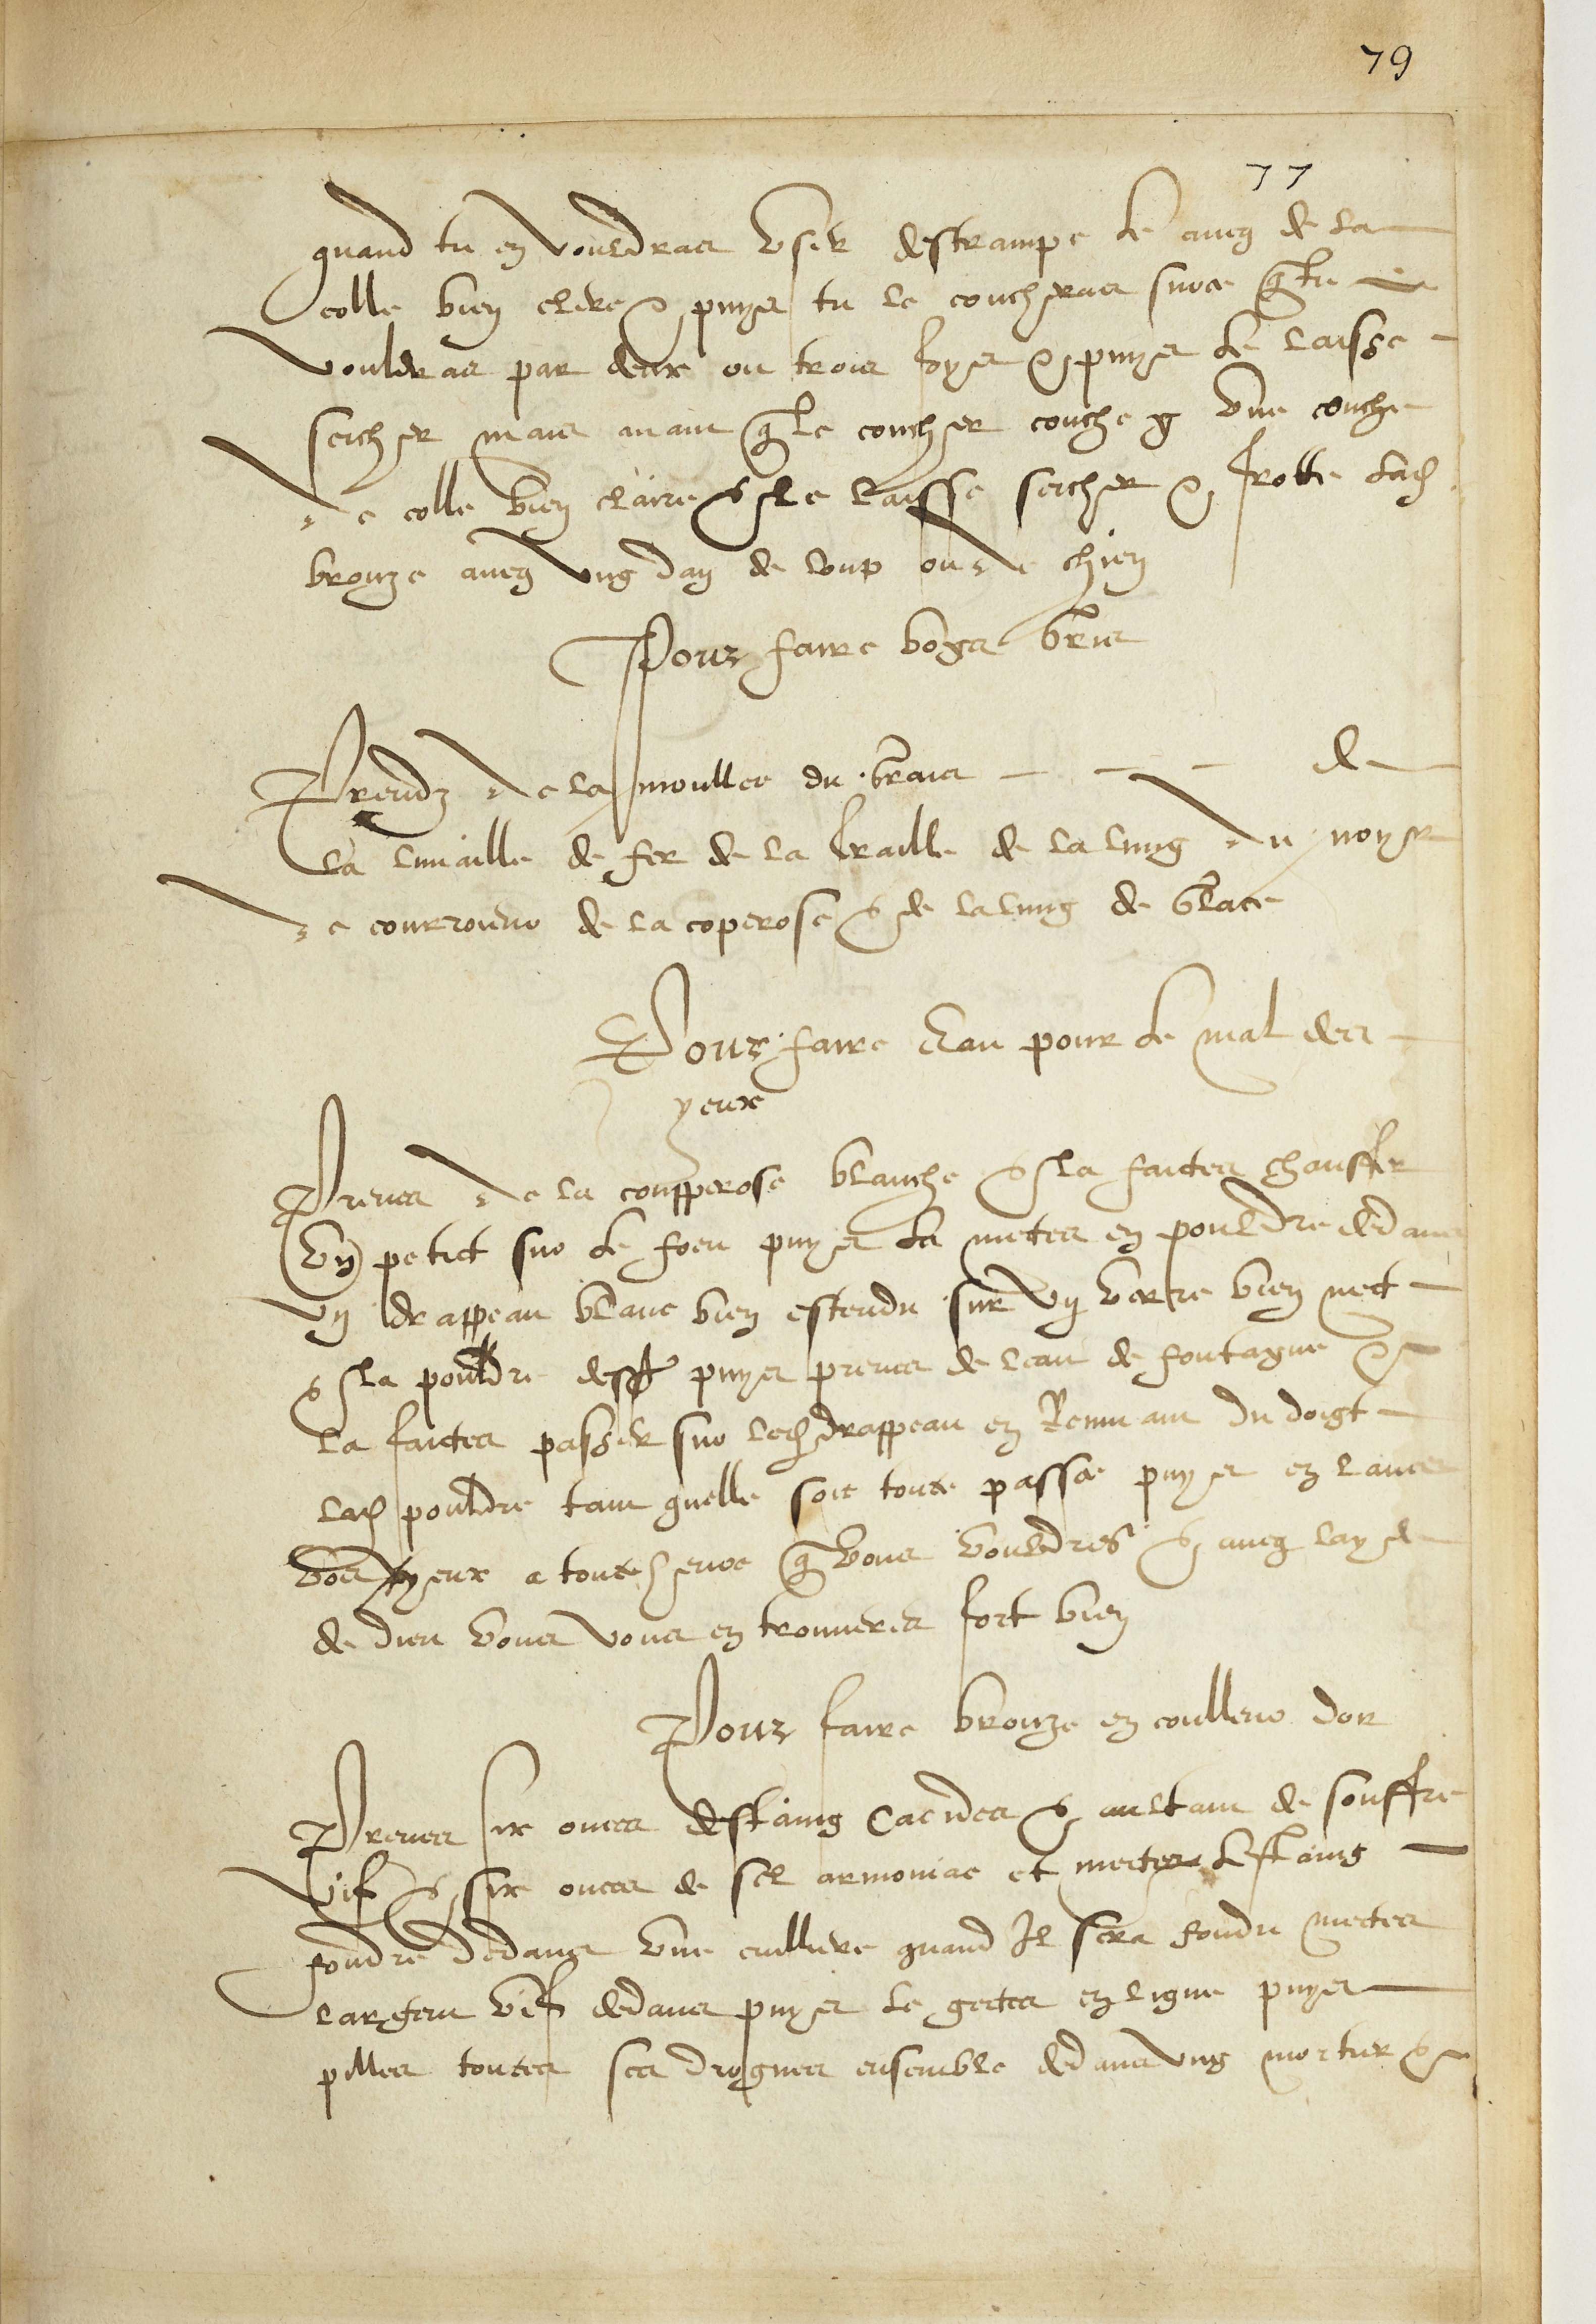 79
77
quand tu en vouldras user destrampe le aueq de la
colle bien clere & puys tu le coucheras sur ce q tu
vouldras par deux ou trois foys & puys le laisse
seicher mais auant q le coucher couche y vne couche
de colle bien claire & le laisse seicher & frotte lad
bronze aueq vng dan de loup ou de chien
Pour faire boys
Prendz de la moullee du de
la limaille de fer de la de la lung du noyer
de de la coperose & de lalung de glace
Pour faire Eau pour le mal des
yeux
Prenes de la coupperose blanche & la faictes chauffer
vn petict sur le foeu puys la metes en pouldre dedans
vn drappeau blanc bien estendu sur vn verre bien nect
& la pouldre dess9 puys prenes de leau de fontayne &
la faictes passer sur led drappeau en Remuant du doigt
lad pouldre tant quelle soit toute passee puys en laues
vos yeux a toute heure q vous vouldres & aueq layde
de dieu vous vous en trouueres fort bien
Pour faire bronze en coulleur dor
Prenes six onces destaing & aultant de souffre
vif & six onces de sel armoniac et mectes lestaing
fondre dedans vne cuilliere quand Il sera fondu mectes
largent vif dedans puys le gectes en ligne puys
pilles toutes ses drogues ensemble dedans vng mortier &